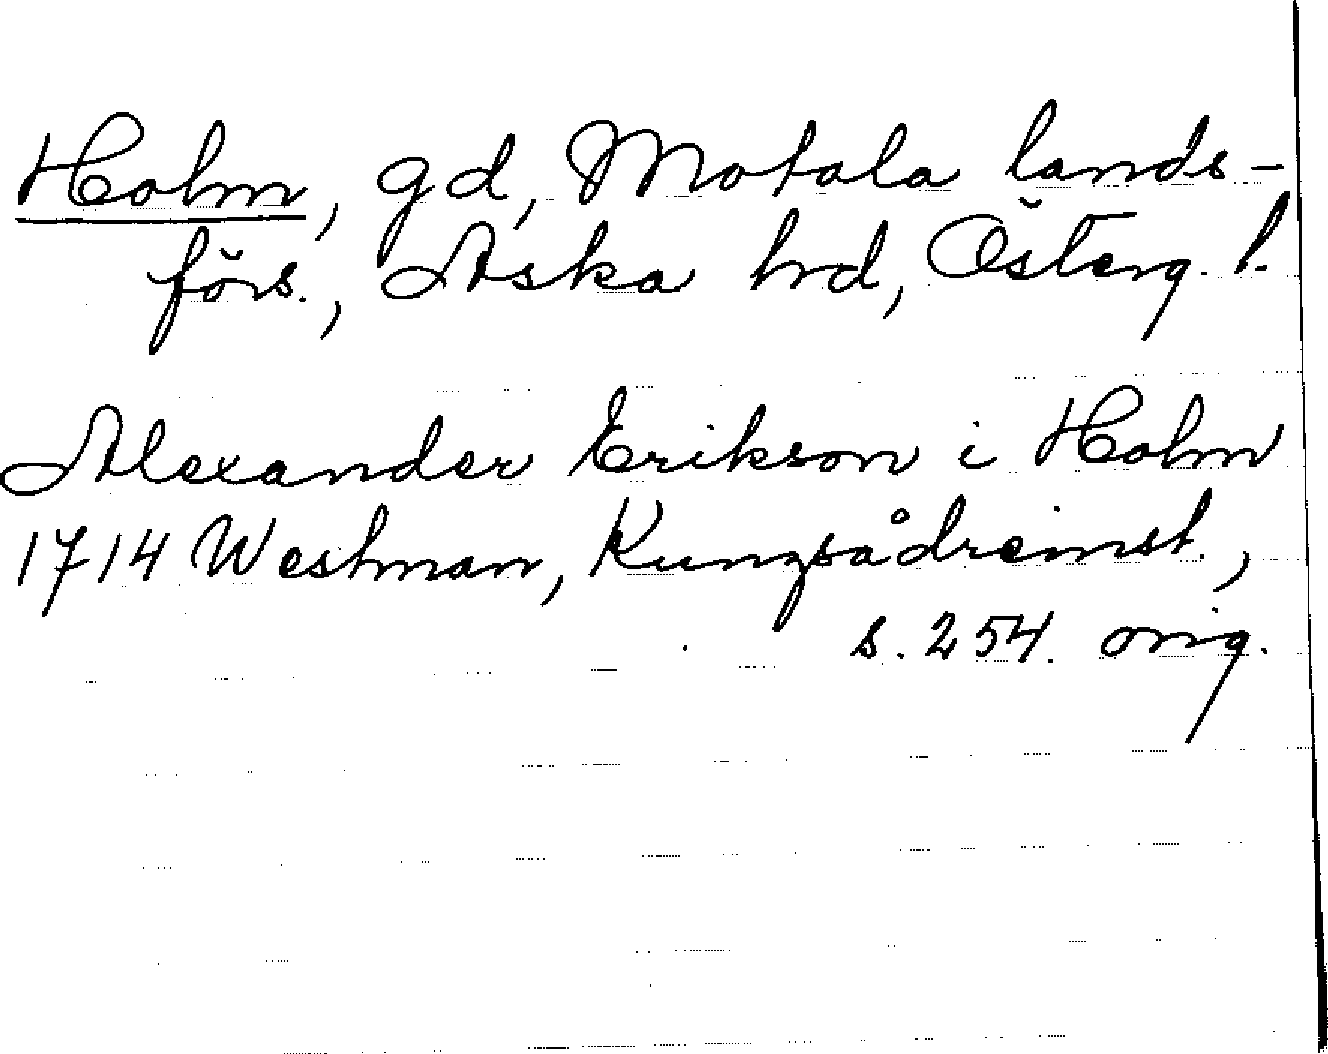 Holm, gd, Motala lands-
förs., Aska hd, Österg. l.
Alexander Erikson i Holm
1714 Westman, Kungsådreinst.,
s. 254. orig.